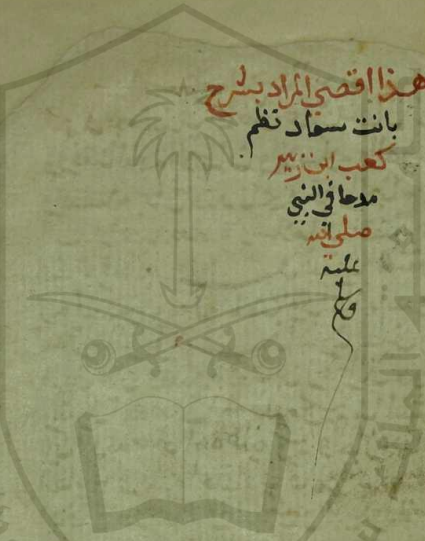 هذا اقصي المراد بشرح
بانت سعاد نظم
كعب ابن زهير
مدحا في النبي
صلي الله
عليه
وسلم